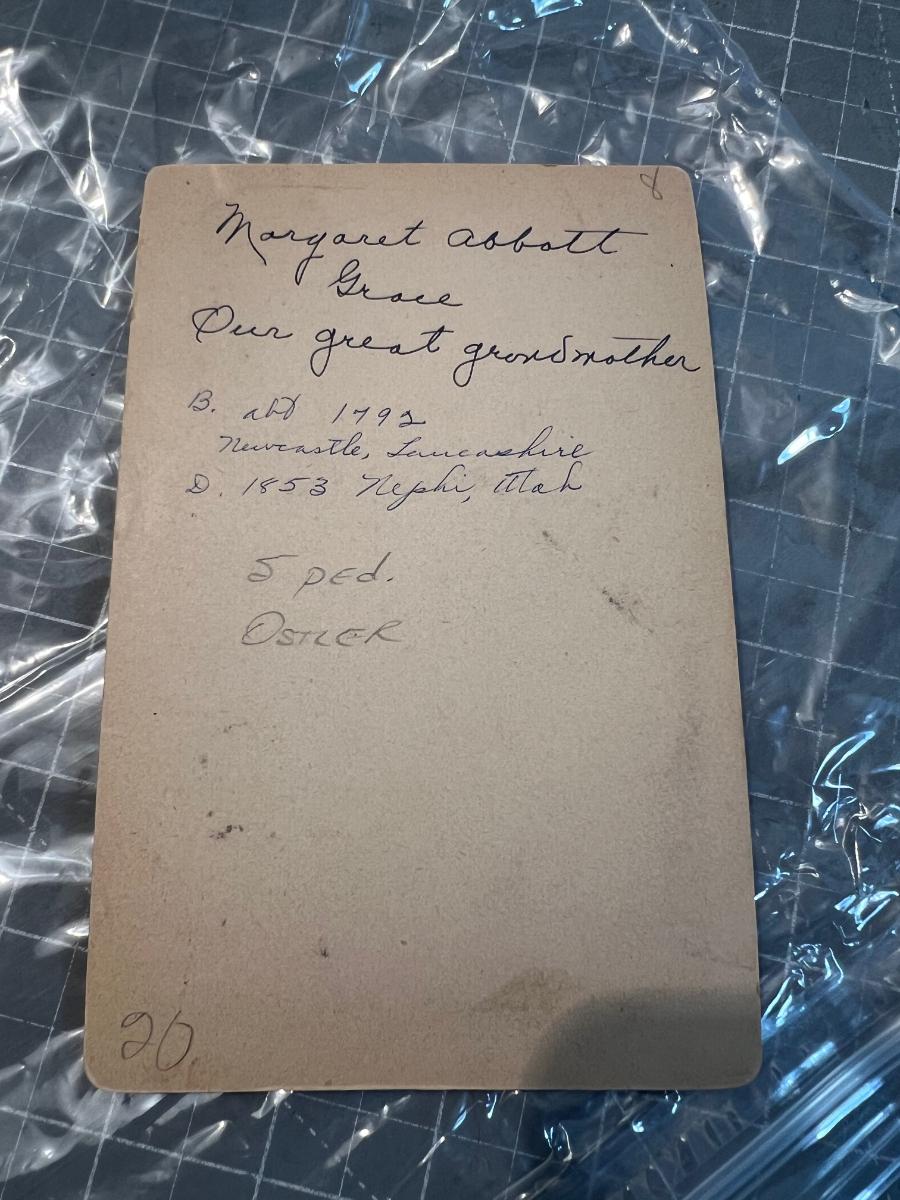 8
Margaret Abbott
Grace
Our great grandmother
B. abt 1792
Newcastle, Lancashire
D. 1853 Nephi, Utah
5 PEd.
OSTLER
20